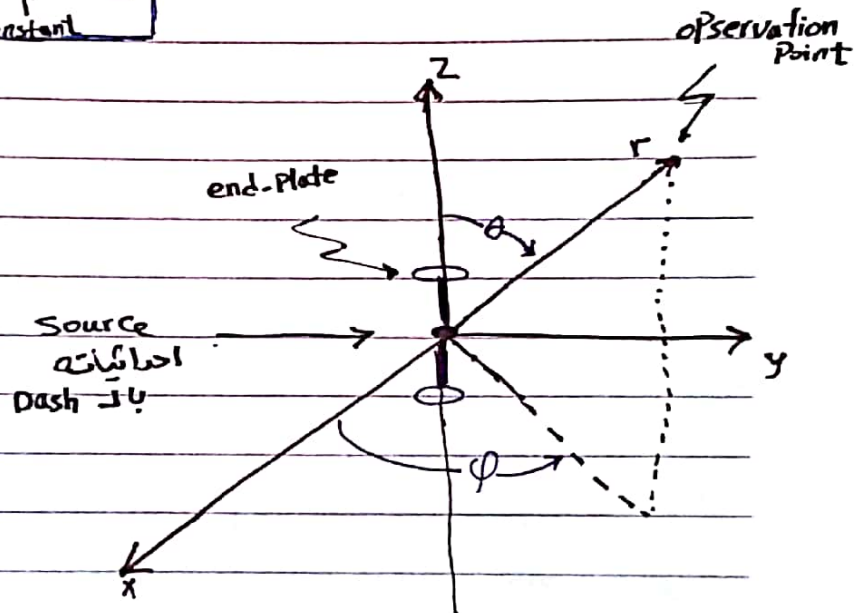 nstant
opservation
Point
Z
r
end-Plate
θ
Source
احداثياته
بالـ Dash
y
φ
x